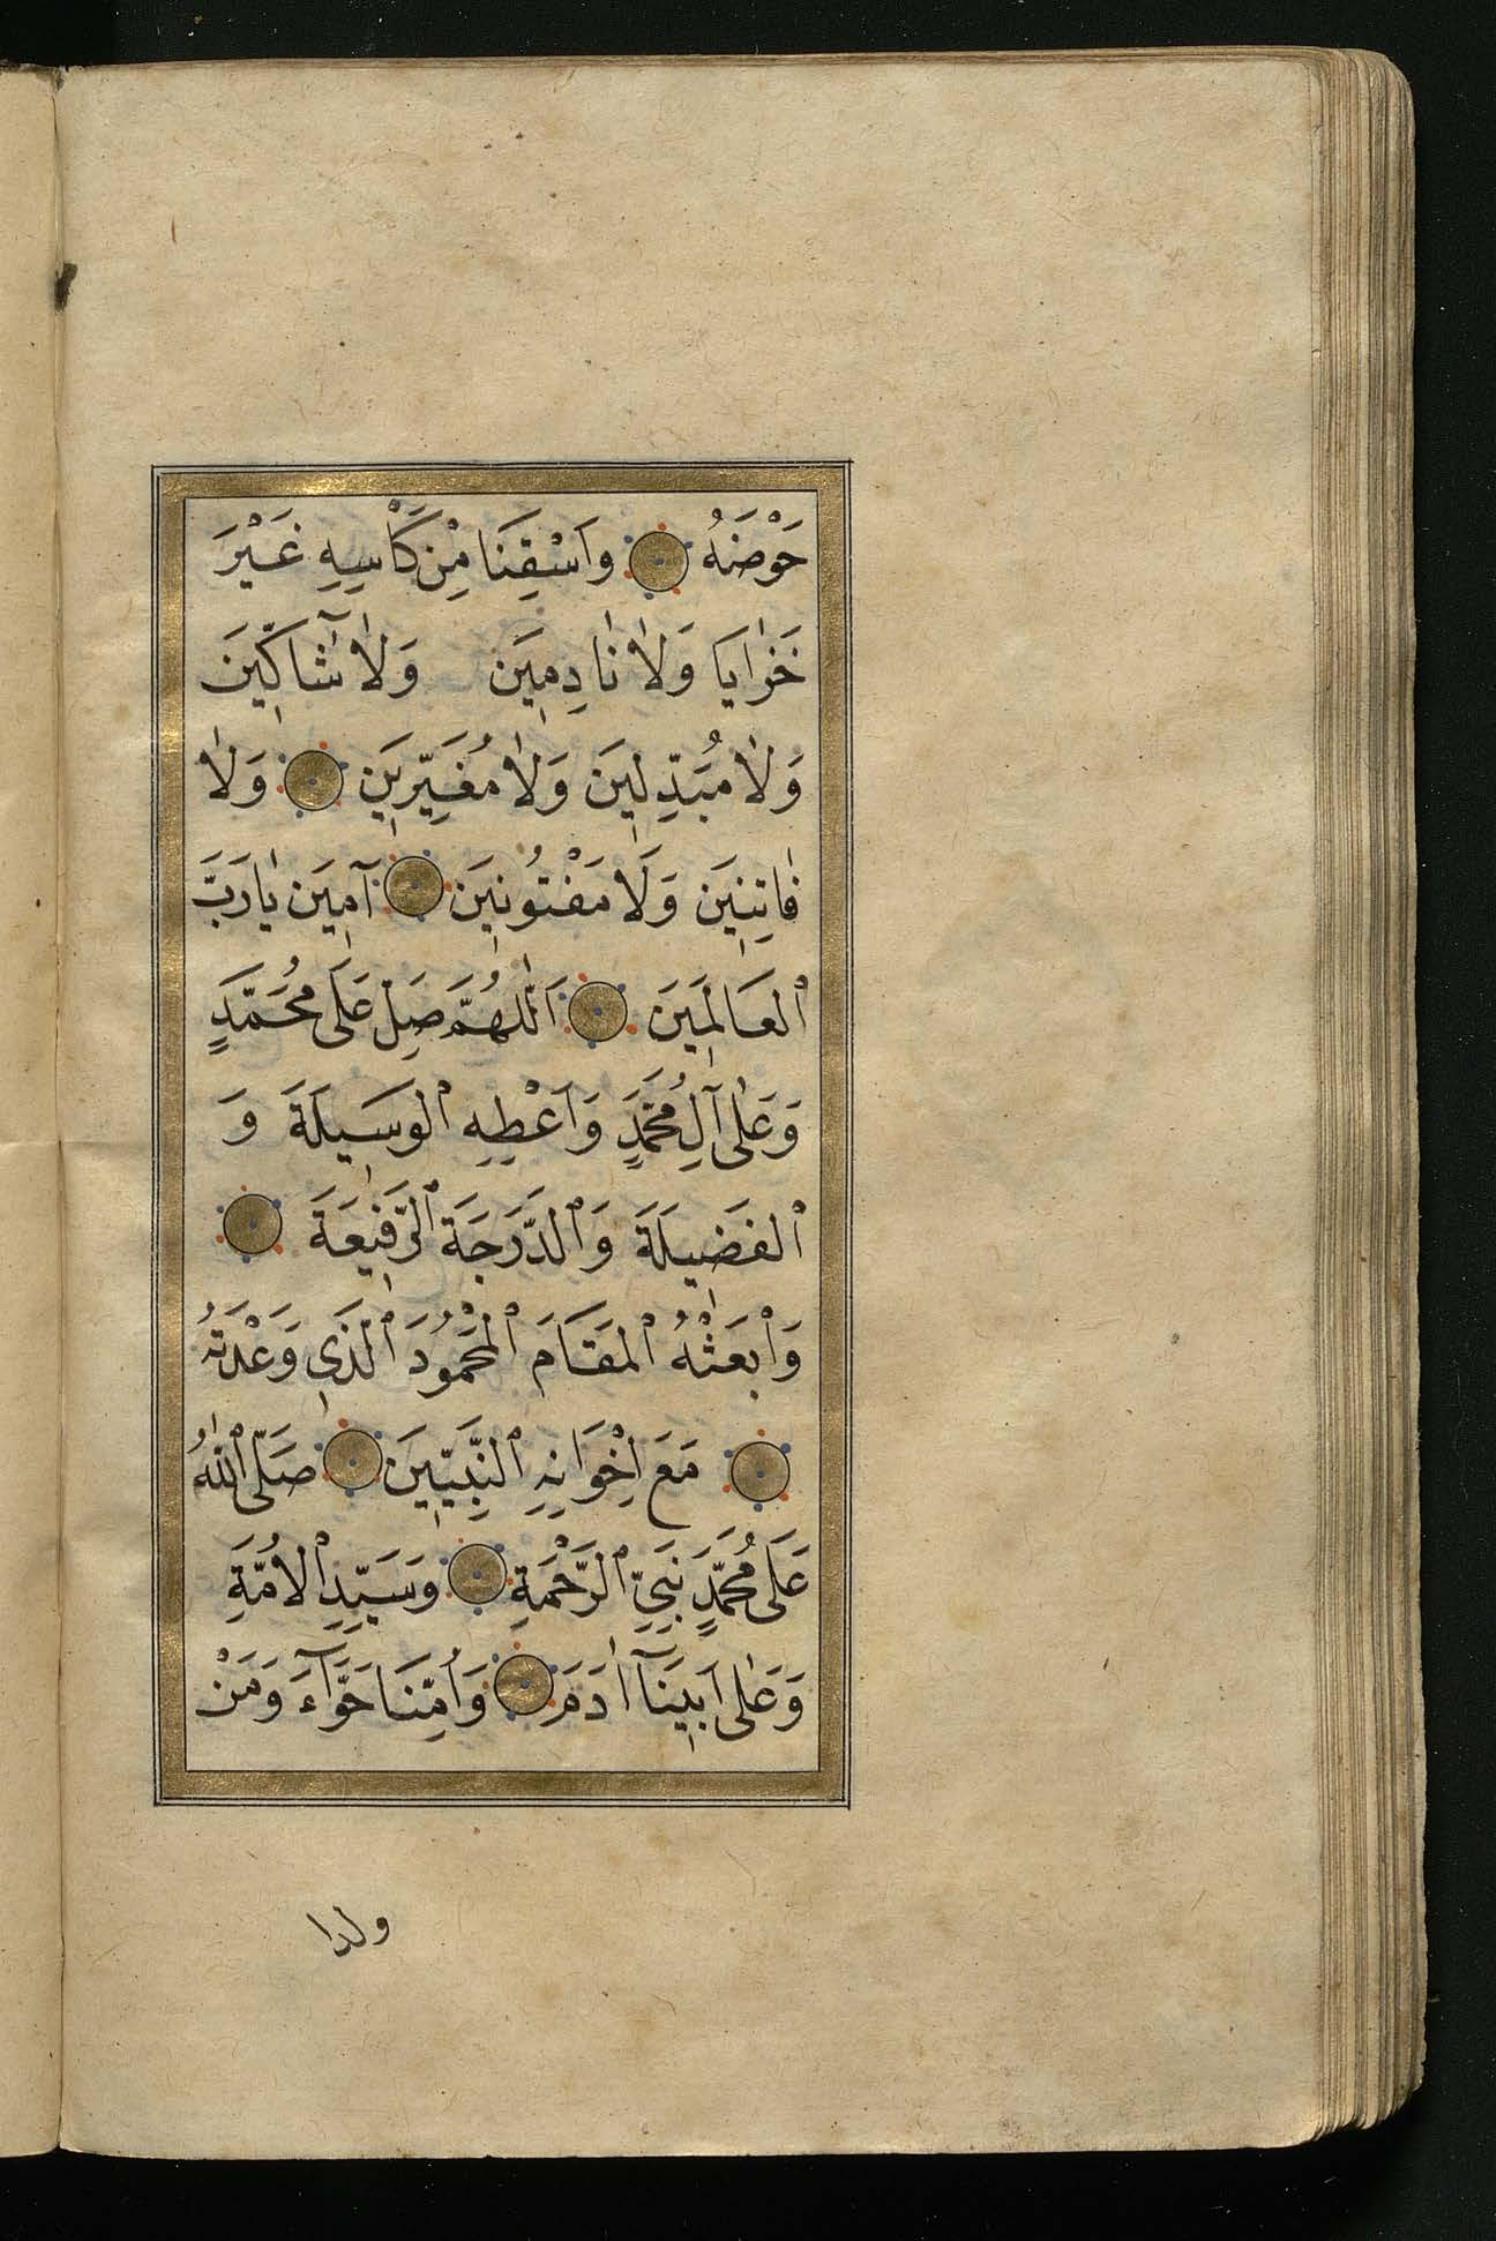 حَوْضَهُ وَاسْقِنَا مِنْ كَأْسِهِ غَيْرَ
خَزَايَا وَلَا نَادِمِينَ وَلَا شَاكِّينَ
وَلَا مُبَدِّلِينَ وَلَا مُغَيِّرِينَ وَلَا
فَاتِنِينَ وَلَا مَفْتُونِينَ آمِينَ يَا رَبَّ
الْعَالَمِينَ اَللّٰهُمَّ صَلِّ عَلَى مُحَمَّدٍ
وَعَلَى آلِ مُحَمَّدٍ وَاَعْطِهِ الْوَسِيلَةَ وَ
الْفَضِيلَةَ وَالدَّرَجَةَ الرَّفِيعَةَ
وَابْعَثْهُ الْمَقَامَ الْمَحْمُودَ الَّذِي وَعَدْتَهُ
مَعَ اِخْوَانِهِ النَّبِيِّينَ صَلَّى اللّٰهُ
عَلَى مُحَمَّدٍ نَبِيِّ الرَّحْمَةِ وَسَيِّدِ الْاُمَّةِ
وَعَلَى اَبِينَآ اٰدَمَ وَاُمِّنَا حَوَّآءَ وَمَنْ
ولدا